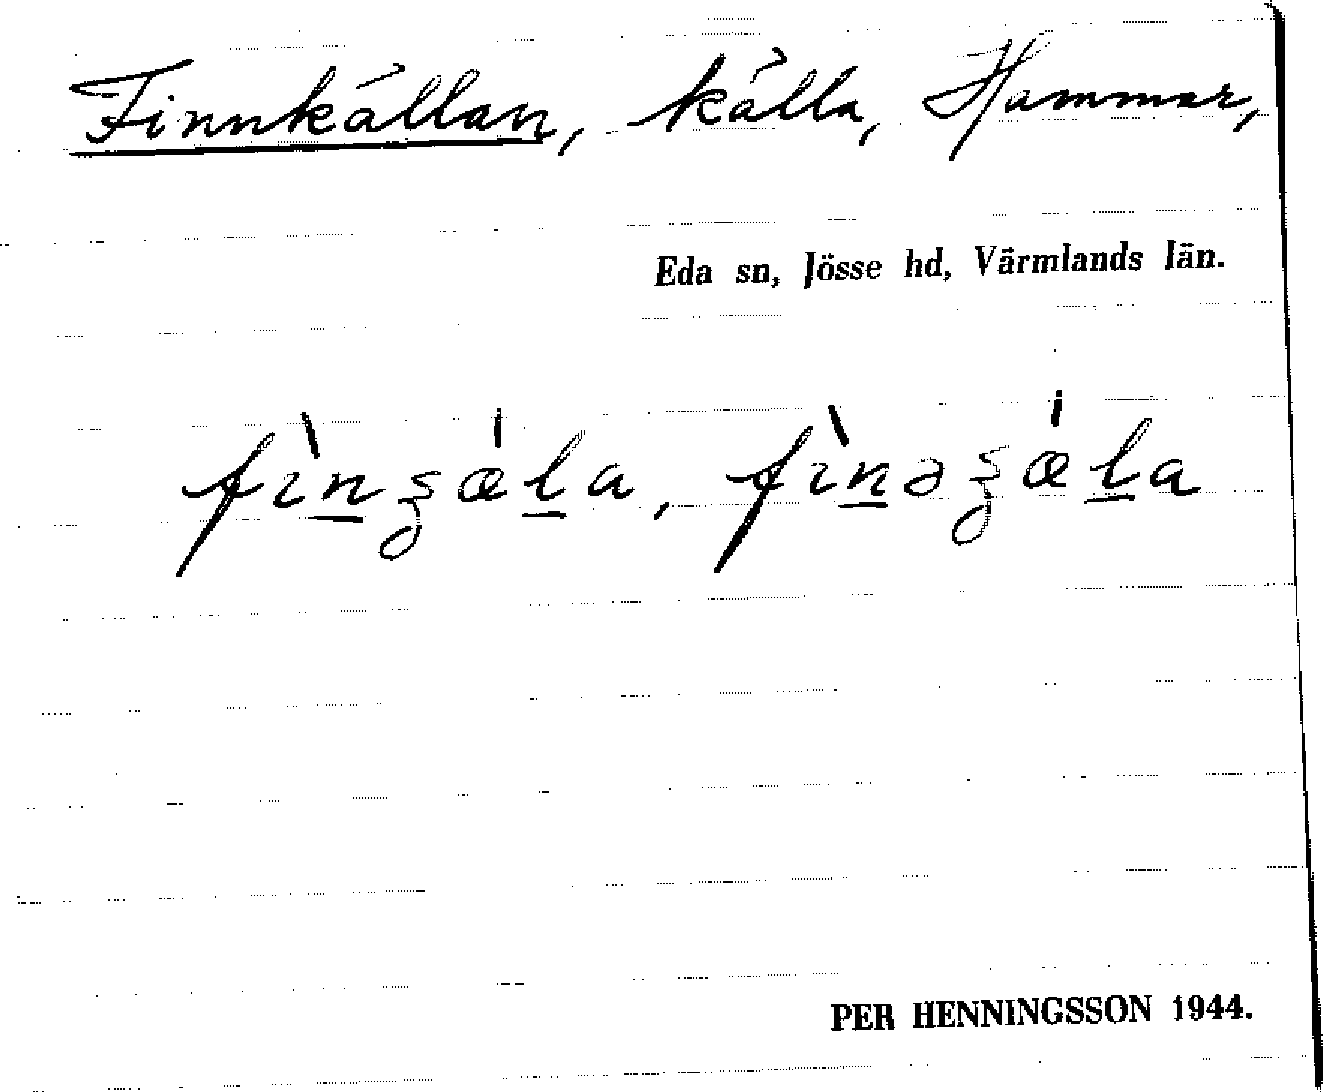 Finnkällan, källa, Hammar,
Eda sn, Jösse hd, Värmlands län.
fìn̲ʒæ̍l̲a, fìn̲əʒæ̍l̲a
PER HENNINGSSON 1944.